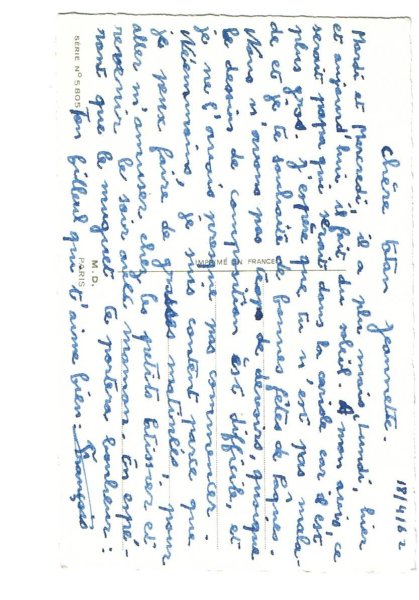 18/4/62
Chère tatan Jeannette.
Mardi et Mercredi, il a plu mais Lundi, hier
et aujourd'hui, il fait du soleil. A mon avis, ce
serait papa qui serait dans la cariole car il est
plus gros. J'espère que tu n'est pas mala-
de et je te souhaite de bonnes fêtes de Pâques.
Nous n'avons pas trop de devoirs, quoique
le dessin de composition est difficile, et
je ne l'avais presque pas commencer.
Néanmoins, je suis content parce que
je peux faire de grosses matinées, pour
aller m'amuser chez les petits et
revenir le soir avec maman. En espé-
rant que le muguet te portera bonheur:
Ton filleul qui t'aime bien: François
IMPRIMÉ EN FRANCE
SÉRIE N° 5805
M. D.
PARIS